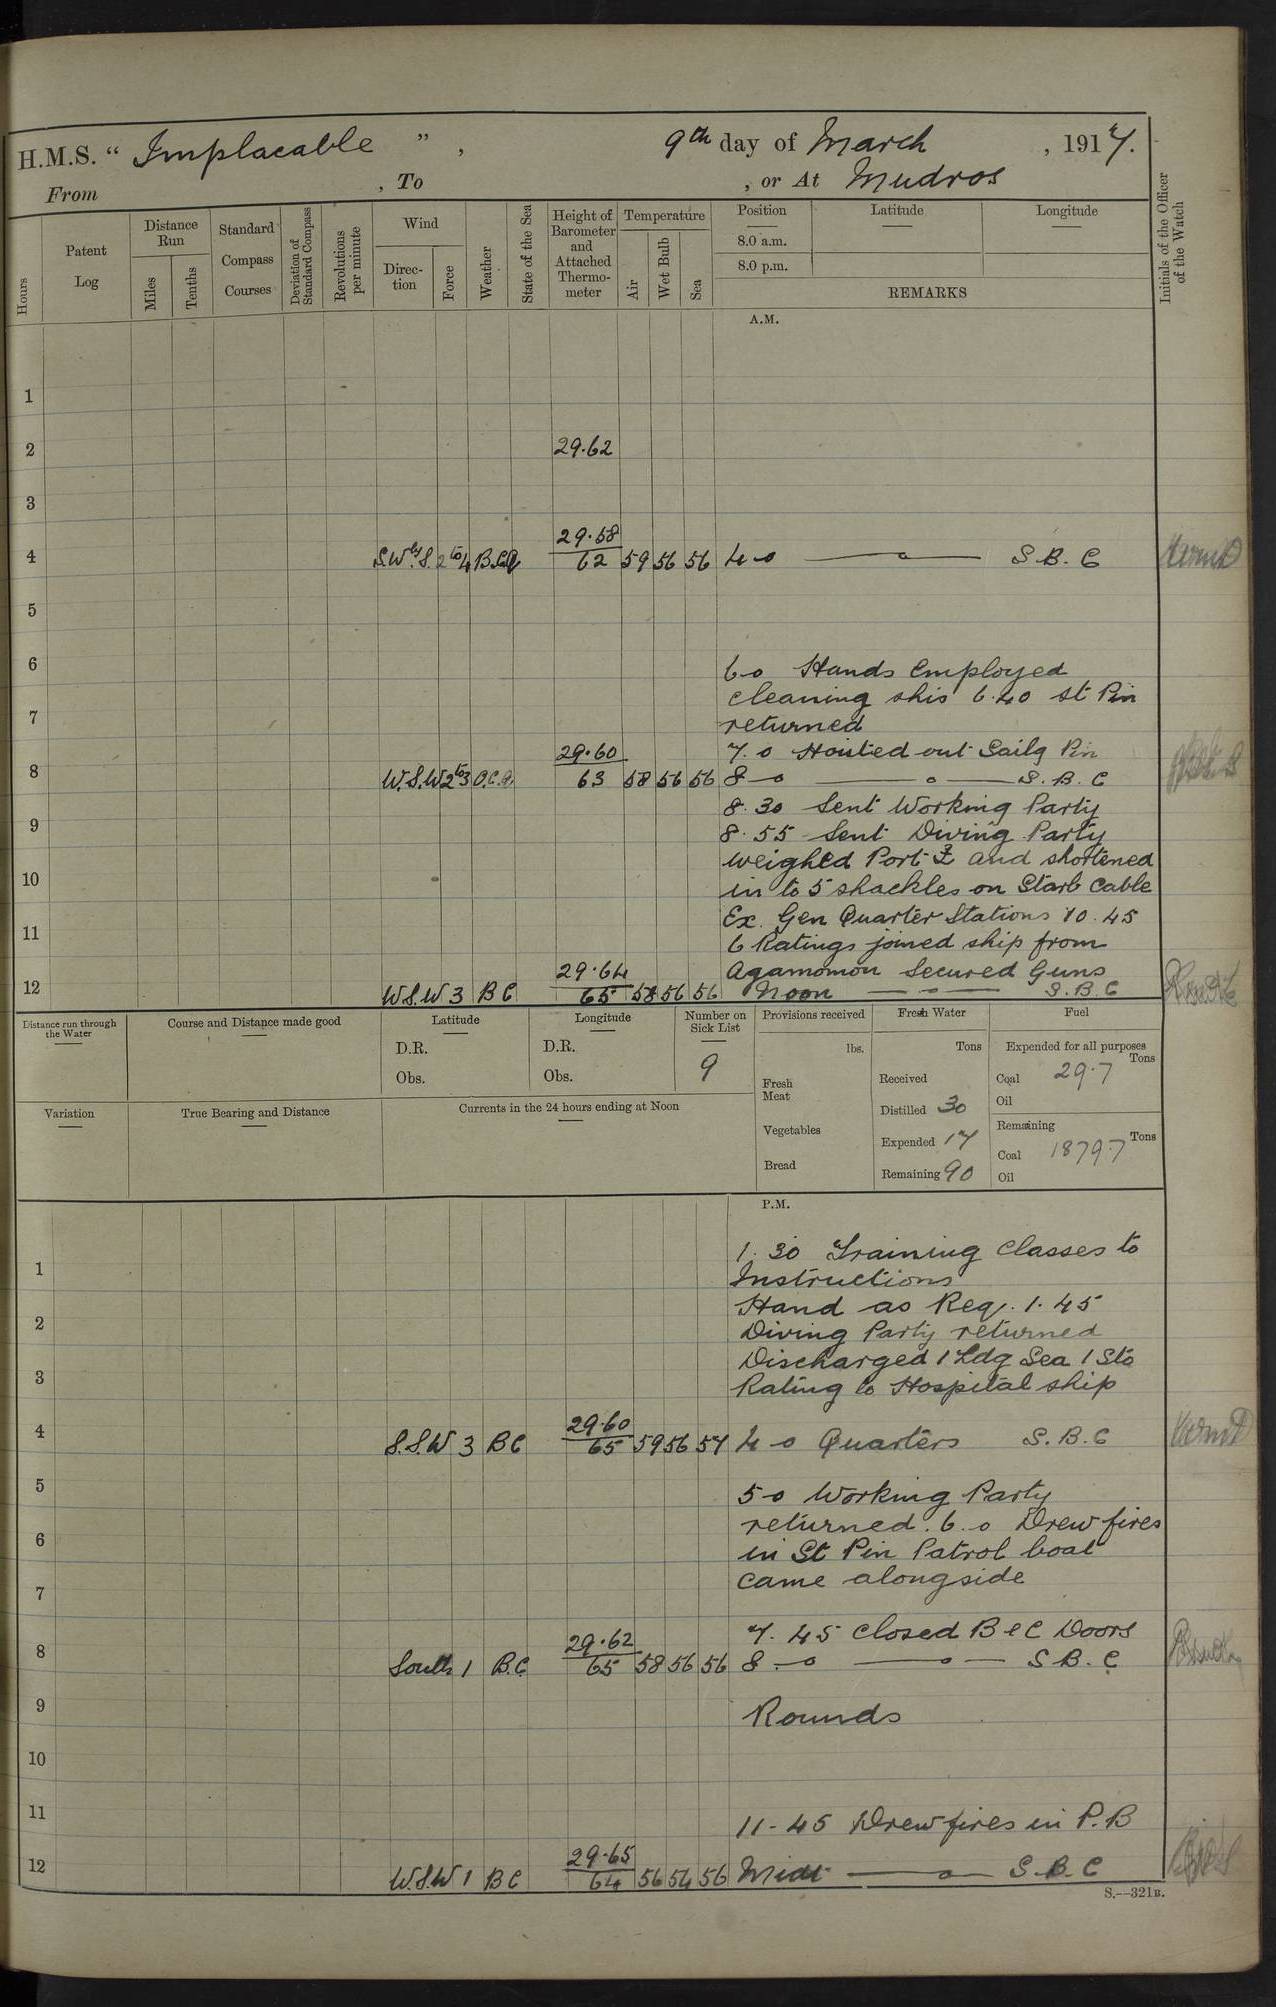 H.M.S. “ Implacable ” , 9th day of March , 1917.
From , To , or At Mudros
Hours
Patent Log
Distance Run
Miles
Tenths
Standard Compass Courses
Deviation of Standard Compass
Revolutions per minute
Wind
Direc-tion
Force
Weather
State of the Sea
Height of Barometer and Attached Thermo-meter
Temperature
Air
Wet Bulb
Sea
Position
8.0 a.m.
8.0 p.m.
Latitude
Longitude
REMARKS
Initials of the Officer of the Watch
A.M.
1
2 29.62
3
29.58
4 S.W by S. 2 to 4 62 59 56 56 4-0 S.B.C
5
6 6-0 Hands Employed
cleaning ship 6.40 St Pin
7 returned
29.60 7.0 Hoisted out Sailg Pin
8 W.S.W 2 to 3 63 58 56 56 8-0 S.B.C
8.30 Sent Working Party
9 8.55 Sent Diving Party
weighed Port and shortened
10 in to 5 shackles on Starb cable
Ex. Gen Quarter Stations 10.45
11 6 Ratings joined ship from
29.64 Agamomon Secured Guns
12 W.S.W 3 BC 65 58 56 56 Noon S.B.C
Distance run through the Water
Course and Distance made good
Latitude
D.R.
Obs.
Longitude
D.R.
Obs.
Number on Sick List
9
Provisions received
lbs.
Fresh Meat
Vegetables
Bread
Fresh Water
Tons
Received
Distilled 30
Expended 17
Remaining 90
Fuel
Expended for all purposes
Tons
Coal 29.7
Oil
Remaining
Tons
Coal 1879.7
Oil
Variation
True Bearing and Distance
Currents in the 24 hours ending at Noon
P.M.
1.30 Training Classes to
1 Instructions
Hand as Req. 1.45
2 Diving Party returned
Discharged 1 Ldg Sea 1 Sto
3 Rating to Hospital ship
29.60
4 S.S.W 3 BC 65 59 56 57 4-0 Quarters S.B.C
5 5-0 Working Party
returned. 6.0 Drew fires
6 in St Pin Patrol boat
7 came alongside
29.62 7.45 Closed B & C Doors
8 South 1 B.C. 65 58 56 56 8-0 S.B.C
9 Rounds
10
11 11-45 Drew fires in P.B
29.65
12 W.S.W 1 BC 64 56 54 56 Midt S.B.C
S.—321B.